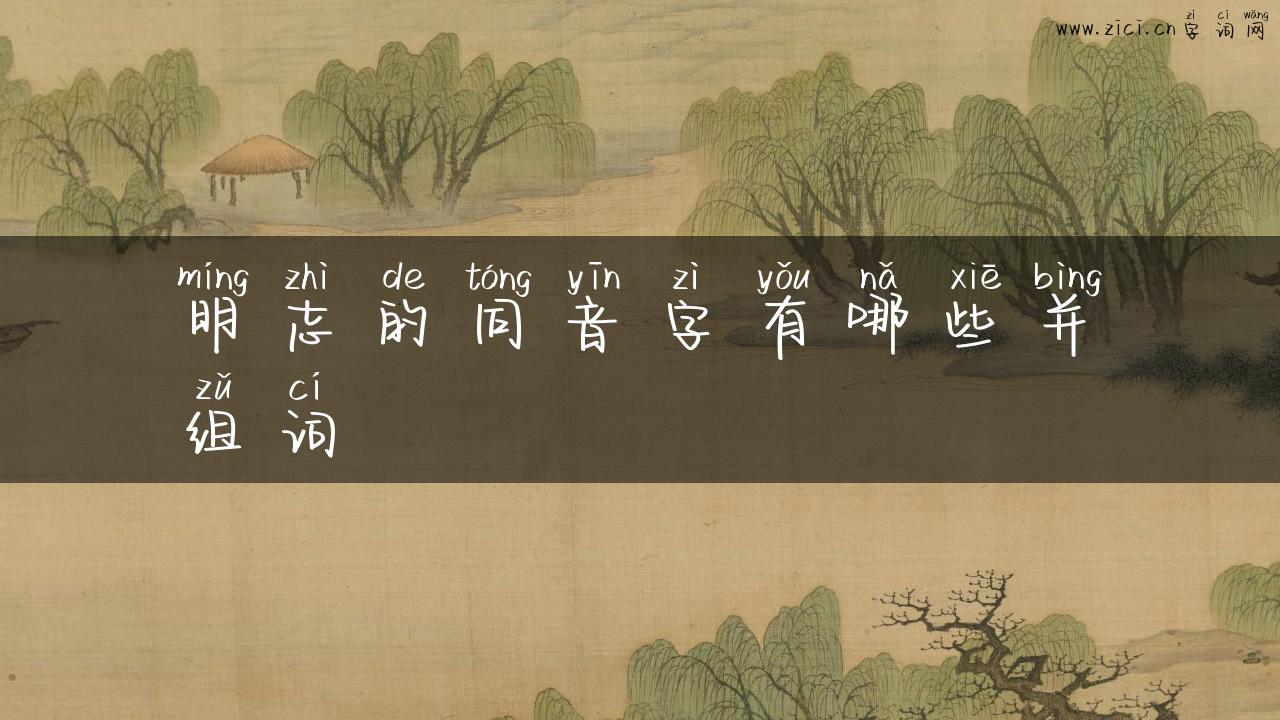 zì cí wǎng
www.zici.cn 字 词 网
míng zhì de tóng yīn zì yǒu nǎ xiē bìng
明 志 的 同 音 字 有 哪 些 并
zǔ cí
组 词